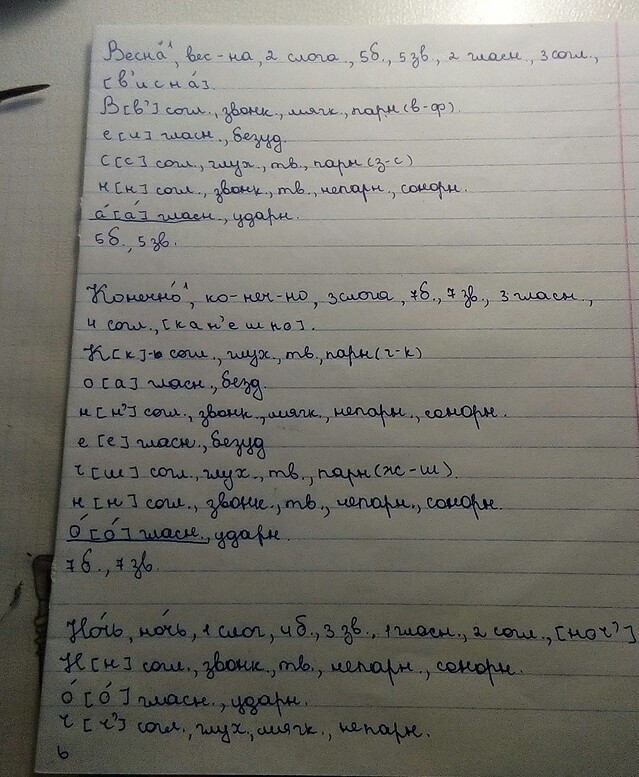 Весна́¹, вес-на, 2 слога, 5б., 5зв., 2 гласн., 3согл.,
[в'исна́].
В[в'] согл., звонк., мягк., парн(в-ф).
е[и] гласн., безуд.
С[с] согл., глух., тв., парн(з-с)
н[н] согл., звонк., тв., непарн., сонорн.
а́[а́] гласн., ударн.
5б., 5зв.
Конечно́¹, ко-неч-но, 3слога, 7б., 7зв., 3гласн.,
4 согл., [кан'ешно].
К[к]-согл., глух., тв., парн(г-к)
о[а] гласн., безд.
н[н'] согл., звонк., мягк., непарн., сонорн.
е [е] гласн., безуд
ч[ш] согл., глух., тв., парн(ж-ш).
н[н] согл., звонк., тв., непарн., сонорн.
о́[о́] гласн., ударн.
7б., 7зв.
Но́чь, но́чь, 1 слог, 4б., 3зв., 1гласн., 2 согл., [ноч']
Н[н] согл., звонк., тв., непарн., сонорн.
о́[о́] гласн., ударн.
ч[ч'] согл., глух., мягк., непарн.
ь